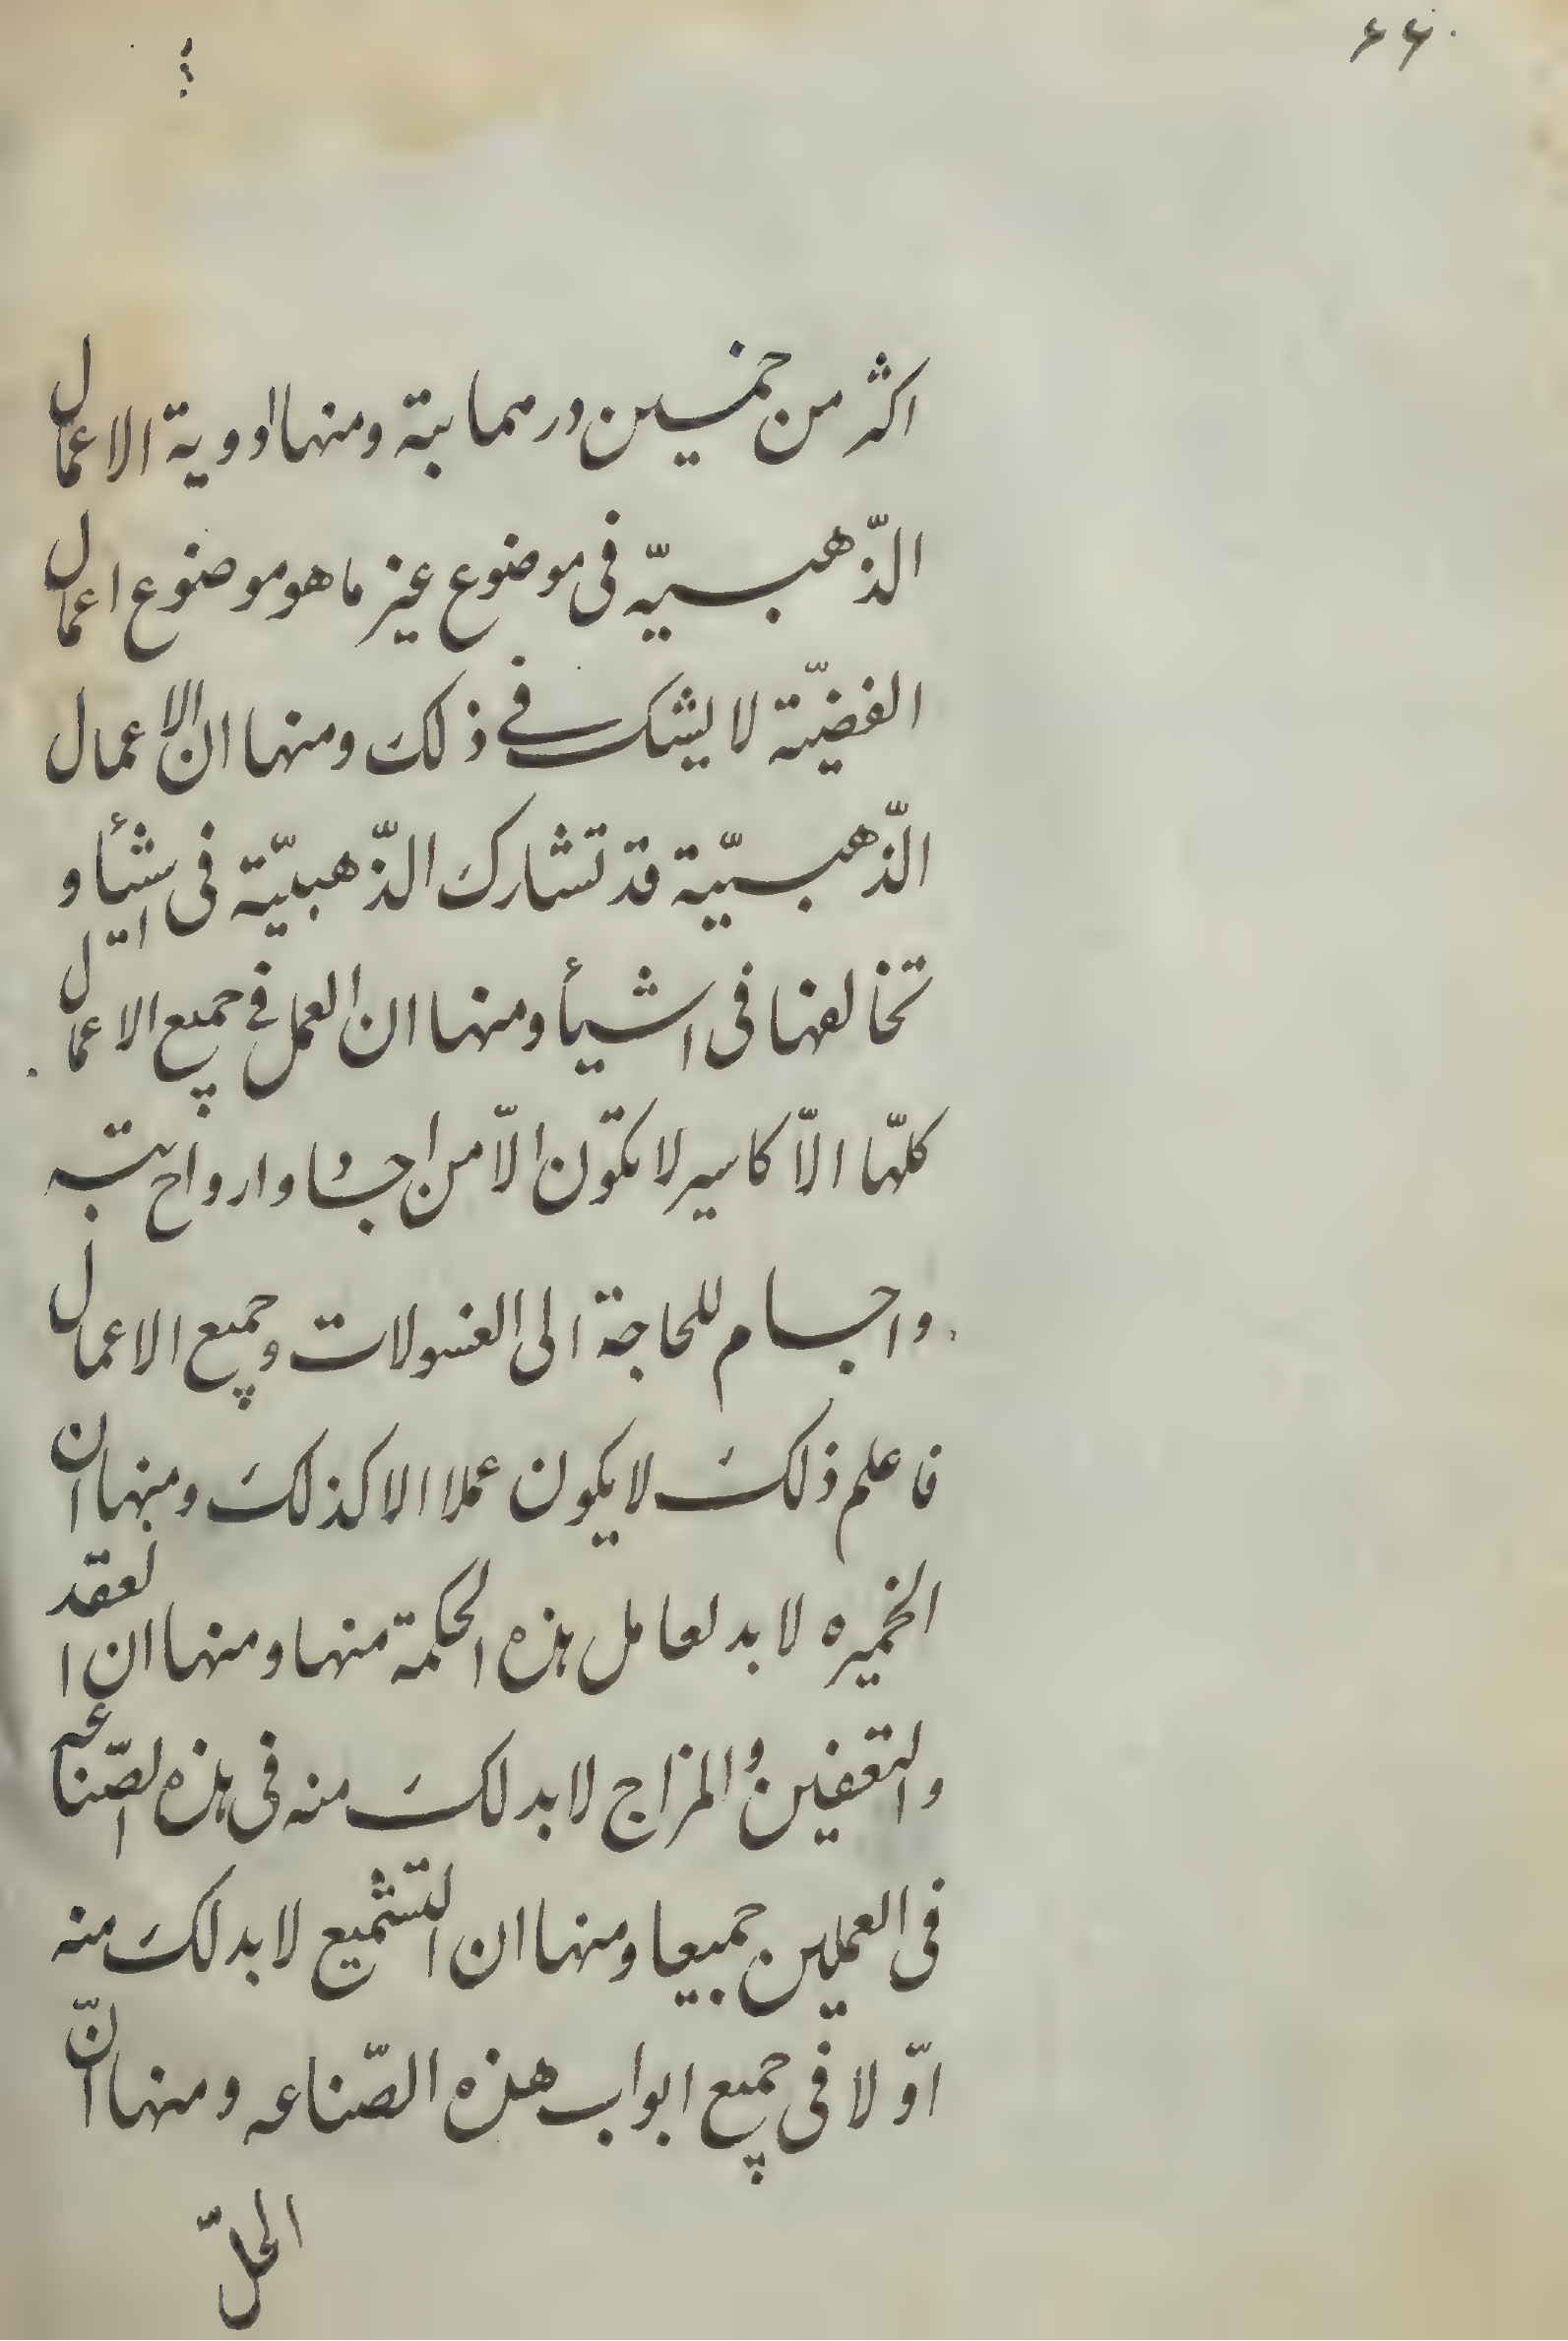 ۶۶۰
اكثر من خمسين درهما بتة ومنها ادوية الاعمال
الذّهبيّه فى موضوع غير ما هو موضوع اعمال
الفضيّة لا يشك فے ذلك ومنها ان الاعمال
الذّهبيّة قد تشارك الذّهبيّة فى اشيأ و
تخالفها فى اشيأ ومنها ان العمل فے جميع الاعمال
كلّها الّا كاسير لا تكوّن الّا من اجسا وارواح بته
واجسام للحاجة الى الغسولات وجميع الاعمال
فاعلم ذلك لا يكون عملا الا كذلك ومنها ان
الخميره لا بد لعامل هذه الحكمة منها ومنها ان العقد
والتعفين والمزاج لا بد لك منه فى هذه الصّناعه
فى العملين جميعا ومنها ان التشميع لا بد لك منه
اوّلا فى جميع ابواب هذه الصّناعه ومنها انّ
الحلّ